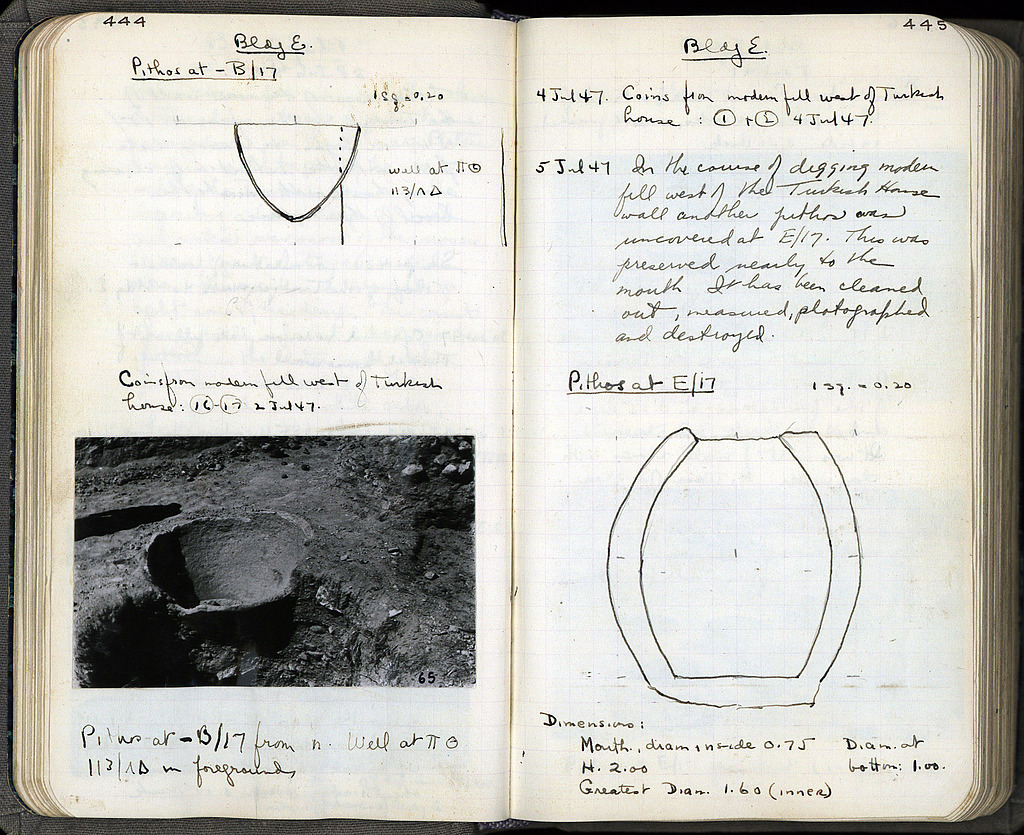 444
Bldg E.
Pithos at - B/17
1 sq. = 0.20
well at ΠΘ
113/ΛΔ
Coins from modern fill west of Turkish
house: (16)-(17) 2 Jul 47.
65
Pithos at - B/17 from n. Well at ΠΘ
113/ΛΔ in foreground
445
Bldg E.
4 Jul 47. Coins from modern fill west of Turkish
house : (1) + (2) 4 Jul 47.
5 Jul 47 In the course of digging modern
fill west of the Turkish House
wall another pithos was
uncovered at E/17. This was
preserved nearly to the
mouth. It has been cleaned
out, measured, photographed
and destroyed.
Pithos at E/17 1 sq. = 0.20
Dimensions:
Mouth, diam inside 0.75
H. 2.00
Greatest Diam. 1.60 (inner)
Diam. at
bottom: 1.00.